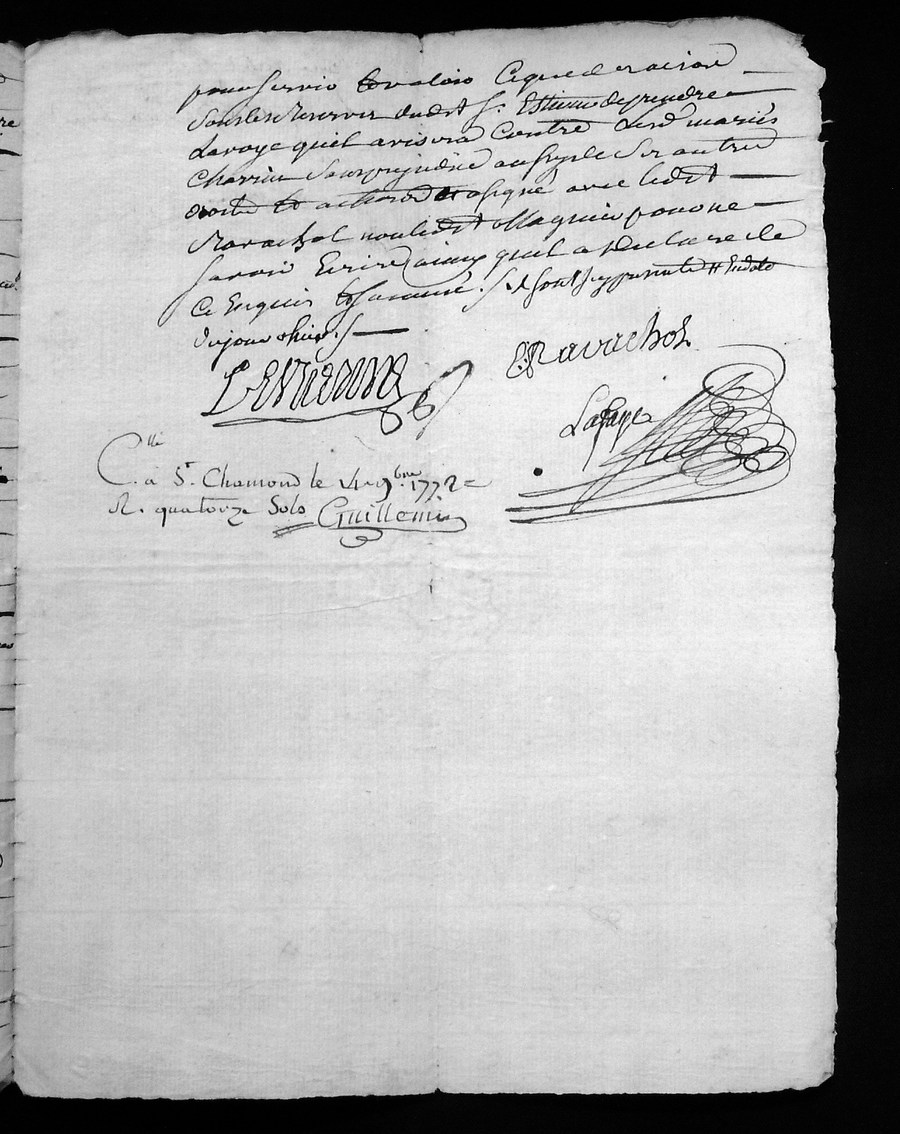 pour servir et valoir ce que de raison
sous les Reserves dudit Sr. Estienne de prendre
la voye quil avisera contre lesd mariés
Chavin sans prejudice aussy de ses autres
droits et actions et a signé avec ledit
Ravachol non ledit Magnin pour ne
savoir Ecrire ainsy quil a declaré de
ce Enquis et sommé
du jour d'hier
LESTIENNE
Ravachol
Lafaye
C.lle
C. à St. Chamond le 4 9bre 1772
R. quatorze Sols Guillemin